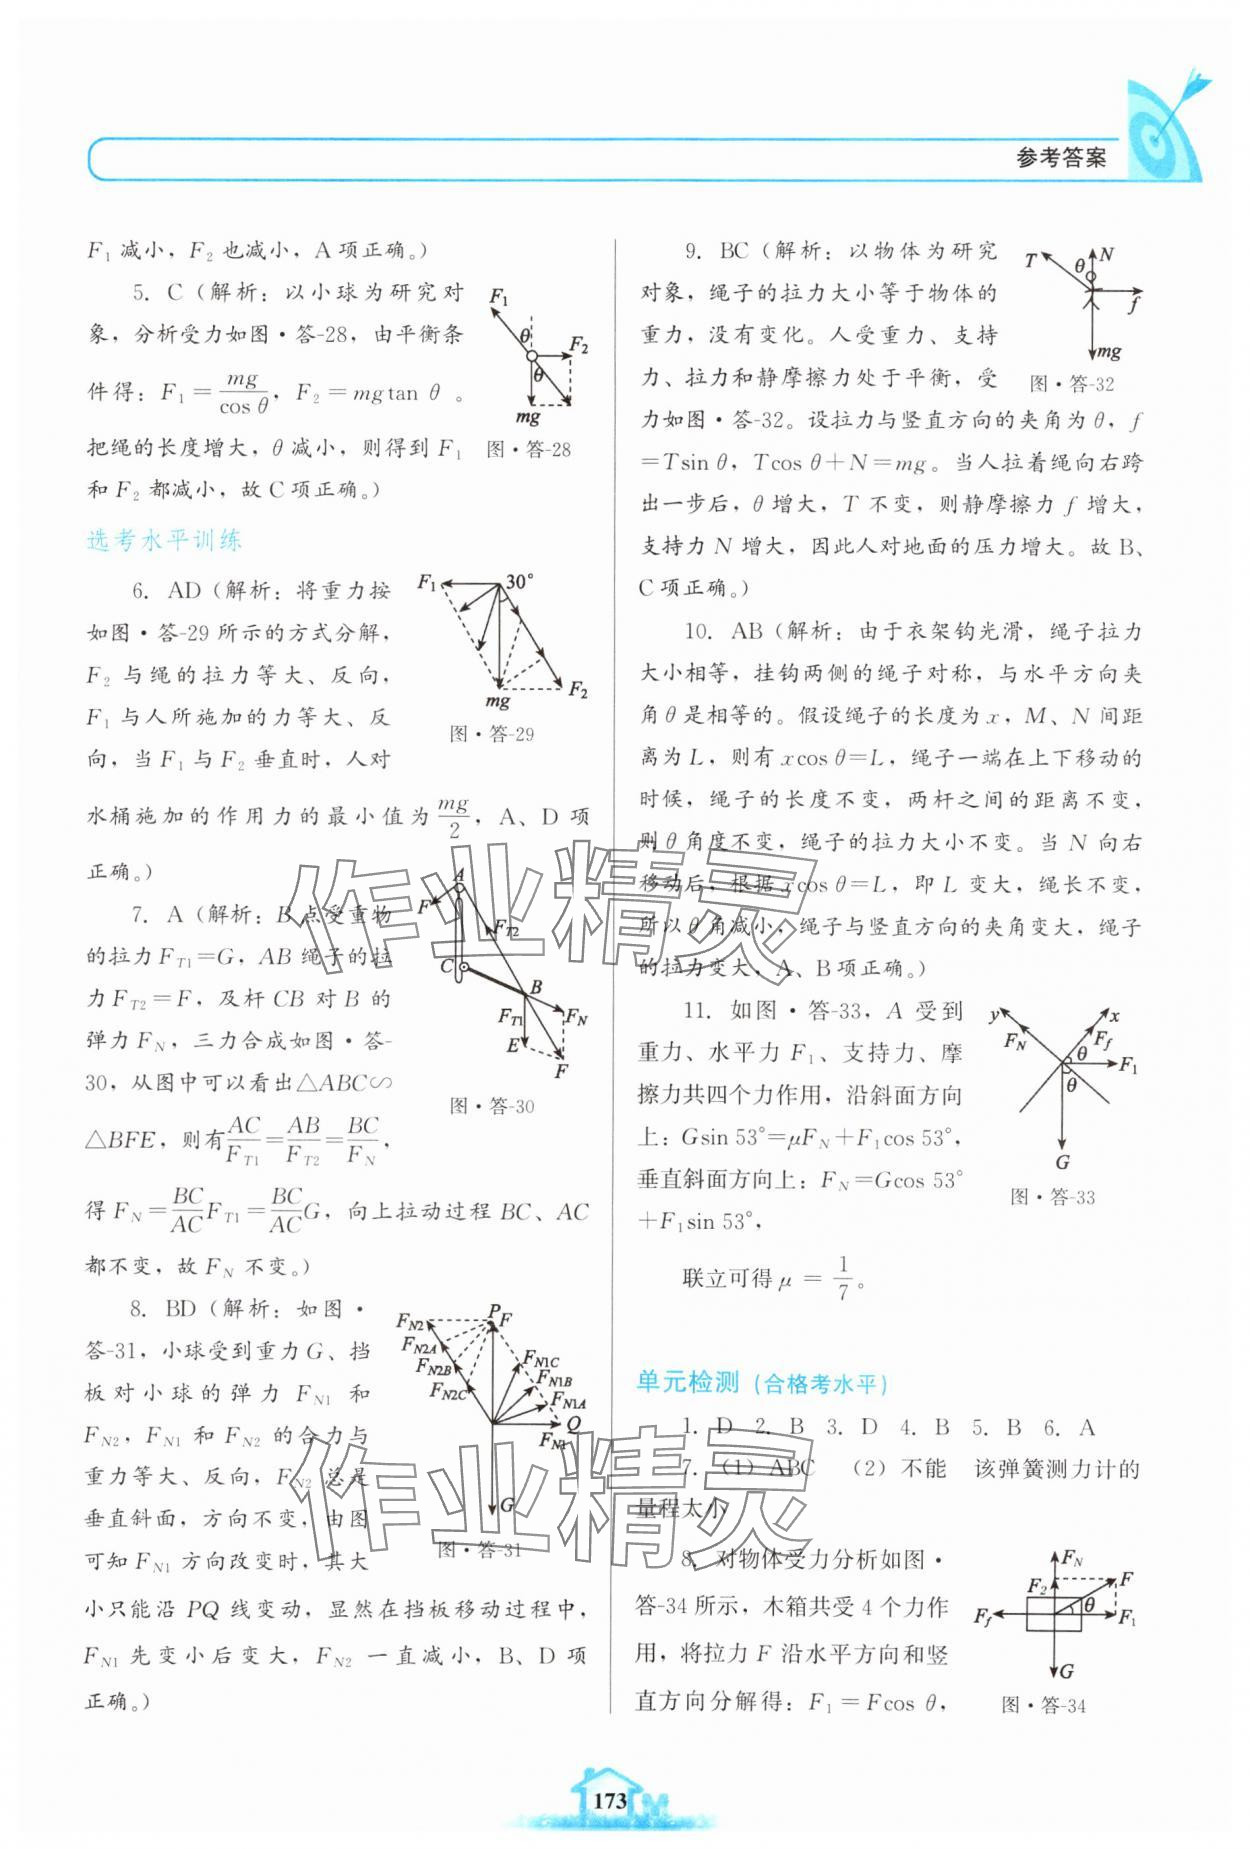 参考答案
F₁减小，F₂也减小，A项正确。）
5. C（解析：以小球为研究对
象，分析受力如图·答-28，由平衡条
件得：F₁＝mg/cos θ，F₂＝mgtan θ。
把绳的长度增大，θ减小，则得到F₁
和F₂都减小，故C项正确。）
F₁
θ
F₂
θ
mg
图·答-28
选考水平训练
6. AD（解析：将重力按
如图·答-29所示的方式分解，
F₂与绳的拉力等大、反向，
F₁与人所施加的力等大、反
向，当F₁与F₂垂直时，人对
水桶施加的作用力的最小值为mg/2，A、D项
正确。）
F₁
30°
F₂
mg
图·答-29
7. A（解析：B点受重物
的拉力F_T1＝G，AB绳子的拉
力F_T2＝F，及杆CB对B的
弹力F_N，三力合成如图·答-
30，从图中可以看出△ABC∽
△BFE，则有AC/F_T1＝AB/F_T2＝BC/F_N，
得F_N＝BC/AC F_T1＝BC/AC G，向上拉动过程BC、AC
都不变，故F_N不变。）
A
F
F_T2
C
B
F_T1
F_N
E
F
图·答-30
8. BD（解析：如图·
答-31，小球受到重力G、挡
板对小球的弹力F_N1和
F_N2，F_N1和F_N2的合力与
重力等大、反向，F_N2总是
垂直斜面，方向不变，由图
可知F_N1方向改变时，其大
小只能沿PQ线变动，显然在挡板移动过程中，
F_N1先变小后变大，F_N2一直减小，B、D项
正确。）
P
F
F_N2
F_N2A
F_N2B
F_N2C
F_N1C
F_N1B
F_N1A
Q
F_N1
G
图·答-31
9. BC（解析：以物体为研究
对象，绳子的拉力大小等于物体的
重力，没有变化。人受重力、支持
力、拉力和静摩擦力处于平衡，受
力如图·答-32。设拉力与竖直方向的夹角为θ，f
＝Tsin θ，Tcos θ＋N＝mg。当人拉着绳向右跨
出一步后，θ增大，T不变，则静摩擦力f增大，
支持力N增大，因此人对地面的压力增大。故B、
C项正确。）
T
θ
N
f
mg
图·答-32
10. AB（解析：由于衣架钩光滑，绳子拉力
大小相等，挂钩两侧的绳子对称，与水平方向夹
角θ是相等的。假设绳子的长度为x，M、N间距
离为L，则有xcos θ＝L，绳子一端在上下移动的
时候，绳子的长度不变，两杆之间的距离不变，
则θ角度不变，绳子的拉力大小不变。当N向右
移动后，根据xcos θ＝L，即L变大，绳长不变，
所以θ角减小，绳子与竖直方向的夹角变大，绳子
的拉力变大，A、B项正确。）
11. 如图·答-33，A受到
重力、水平力F₁、支持力、摩
擦力共四个力作用，沿斜面方向
上：Gsin 53°＝μF_N＋F₁cos 53°，
垂直斜面方向上：F_N＝Gcos 53°
＋F₁sin 53°，
联立可得μ＝1/7。
y
x
F_N
F_f
θ
F₁
θ
G
图·答-33
单元检测（合格考水平）
1. D 2. B 3. D 4. B 5. B 6. A
7.（1）ABC （2）不能 该弹簧测力计的
量程太小
8. 对物体受力分析如图·
答-34所示，木箱共受4个力作
用，将拉力F沿水平方向和竖
直方向分解得：F₁＝Fcos θ，
F_N
F₂
F
θ
F_f
F₁
G
图·答-34
173
作业精灵
作业精灵